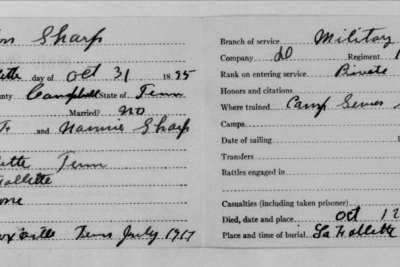 Sharp
day of Oct 31 1895
County Campbell State of Tenn
Married? no
and Nannie Sharp
Tenn
Lafollette
None
Knoxville Tenn July 1917
Branch of service Military
Company D Regiment 1
Rank on entering service Private
Honors and citations
Where trained Camp Sevier
Camps
Date of sailing
Transfers
Battles engaged in
Casualties (including taken prisoner)
Died, date and place Oct 12
Place and time of burial. LaFollette